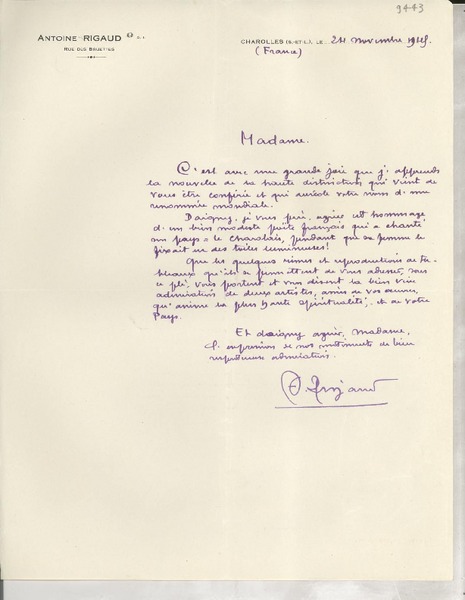 9443
ANTOINE RIGAUD
RUE DES BRUETTES
CHAROLLES (S.-ET-L.), LE 24 novembre 1945.
(France)
Madame.
C'est avec une grande joie que j'apprends
la nouvelle de la haute distinction qui vient de
vous être conférée et qui auréole votre nom d'une
renommée mondiale.
Daignez, je vous prie, agréer cet hommage
d'un bien modeste poète français qui a chanté
son pays : le Charolais, pendant que sa femme le
fixait en des toiles lumineuses !
Que les quelques rimes et reproductions de ta-
bleaux qu'ils se permettent de vous adresser, sous
ce pli, vous portent et vous disent la bien vive
admiration de deux artistes, amis de vos œuvres,
qu'anime la plus haute spiritualité, et de votre
Pays.
Et daignez agréer, Madame,
l'expression de nos sentiments de bien
respectueuse admiration.
A. Rigaud